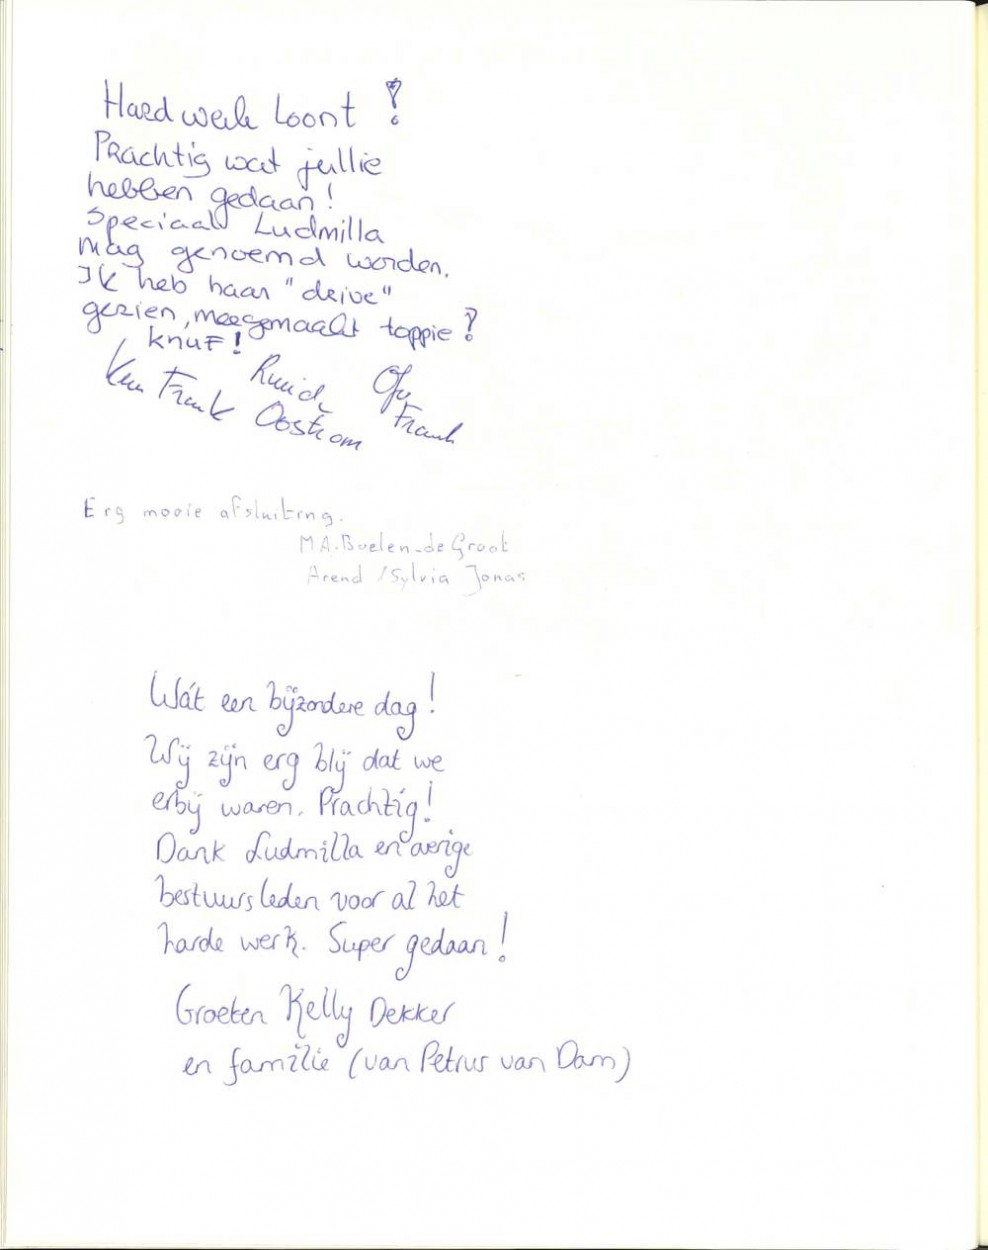 Hard werk Loont!
Prachtig wat jullie
hebben gedaan!
Speciaal Ludmilla
mag genoemd worden.
Ik heb haar "drive"
gezien, meegemaakt toppie!
knuf!
Frank Oostrom
Frank
Erg mooie afsluiting.
M.A. Buelen-de Groot
Arend / Sylvia Jonas
Wát een bijzondere dag!
Wij zijn erg blij dat we
erbij waren. Prachtig!
Dank Ludmilla en overige
bestuursleden voor al het
harde werk. Super gedaan!
Groeten Kelly Dekker
en familie (van Petrus van Dam)